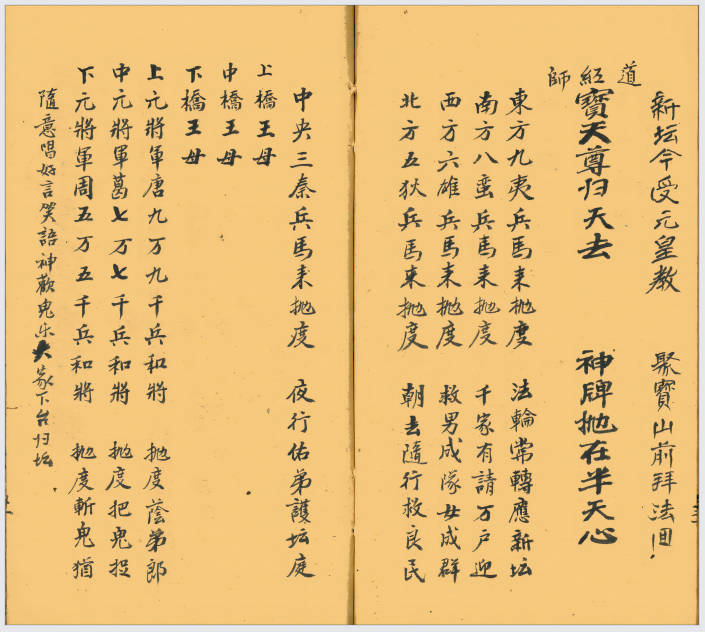 新坛今受元皇教 聚寶山前拜法回!
道經師
寶天尊归天去 神牌抛在半天心
東方九夷兵馬来抛度 法輪常轉應新坛
南方八蛮兵馬来抛度 千家有請万户迎
西方六雄兵馬来抛度 救男成隊女成群
北方五狄兵馬来抛度 朝去隨行救良民
中央三秦兵馬来抛度 夜行佑弟護坛庭
上橋王母
中橋王母
下橋王母
上元將軍唐九万九千兵和將 抛度蔭弟郎
中元將軍葛七万七千兵和將 抛度把鬼捉
下元將軍周五万五千兵和將 抛度斬鬼猶
隨意唱好言笑語神歡鬼乐大家下台归坛.